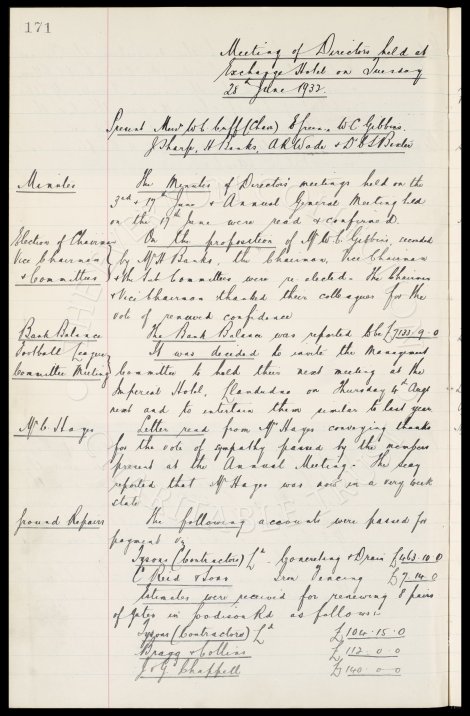 171
Meeting of Directors held at
Exchange Hotel on Tuesday
28th June 1932.
Present Messrs W.C. Cuff (Chair) E Green, W C Gibbins,
J Sharp, H Banks, A R Wade & Dr C S Baxter
Minutes
The Minutes of Directors' meetings held on the
3rd & 17th & Annual General Meeting held
on the 17th June were read & confirmed
Election of Chairman
Vice Chairman
& Committees
On the proposition of Mr W C Gibbins, seconded
by Mr H Banks, the Chairman, Vice Chairman
& the Sub Committees were re-elected. The Chairman
& Vice Chairman thanked their colleagues for the
vote of renewed confidence
Bank Balance
The Bank Balance was reported to be £7133-9-0
Football League
Committee Meeting
It was decided to invite the Management
Committee to hold their next meeting at the
Imperial Hotel, Llandudno on Thursday 4th Augt
next and to entertain them similar to last year
Mr C. Hayes
Letter read from Mr Hayes conveying thanks
for the vote of sympathy passed by the members
present at the Annual Meeting. The Secy
reported that Mr Hayes was now in a very weak
state
Ground Repairs
The following accounts were passed for
payment viz
Tysons (Contractors) Ld - Concreting & Drain £463-10-0
C Reid & Sons Iron Fencing £7-14-0
Estimates were received for renewing 8 pairs
of gates in Goodison Rd as follows:
Tysons (Contractors) Ld £104-15-0
Bragg & Collins £112-0-0
J & G Chappell £140-0-0